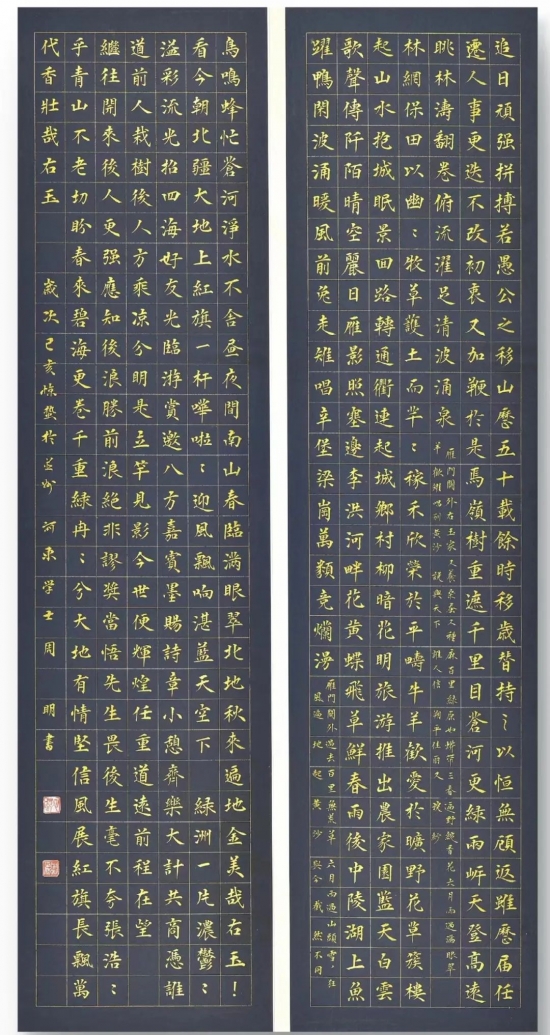 追日頑强拼搏若愚公之移山歷五十載餘時移歲替持〻以恒無頋返雖歷届任
遷人事更迭不改初衷又加鞭於是馬嶺樹重遮千里目蒼河更緑兩岍天登高遠
眺林濤翻卷俯流濯足清波涌泉
雁門關外右玉家
林網保田以幽〻牧草護土而芊〻稼禾欣榮於平疇牛羊歡愛於曠野花草簇樓
起山水抱城眠景回路轉通衢連起城鄉村柳暗花明旅游推出農家園藍天白雲
歌聲傳阡陌晴空麗日雁影照塞邊李洪河畔花黄蝶飛草鮮春雨後中陵湖上魚
躍鴨閑波涌暖風前兔走雉唱辛堡梁崗萬類竞爛漫
雁門關外過去百里無荒草六月雨過山頭雪，狂
風遍地起黄沙與今截然不同
鳥鳴蜂忙蒼河淨水不舍昼夜間南山春臨滿眼翠北地秋來遍地金美哉右玉！
看今朝北疆大地上紅旗一杆嘩啦〻迎風飄响湛藍天空下緑洲一片濃鬱〻
溢彩流光招四海好友光臨游賞邀八方嘉賓墨賜詩章小憩齊樂大計共商憑誰
道前人栽樹後人方乘凉分明是立竿見影今世便輝煌任重道遠前程在望
繼往開來後人更强應知後浪勝前浪絕非謬奬當悟先生畏後生毫不夸張浩〻
乎青山不老切盼春來碧海更卷千重緑冉〻兮大地有情堅信風展紅旗長飄萬
代香壯哉右玉
歲次己亥惊蟄於並州 河東学士周 明書